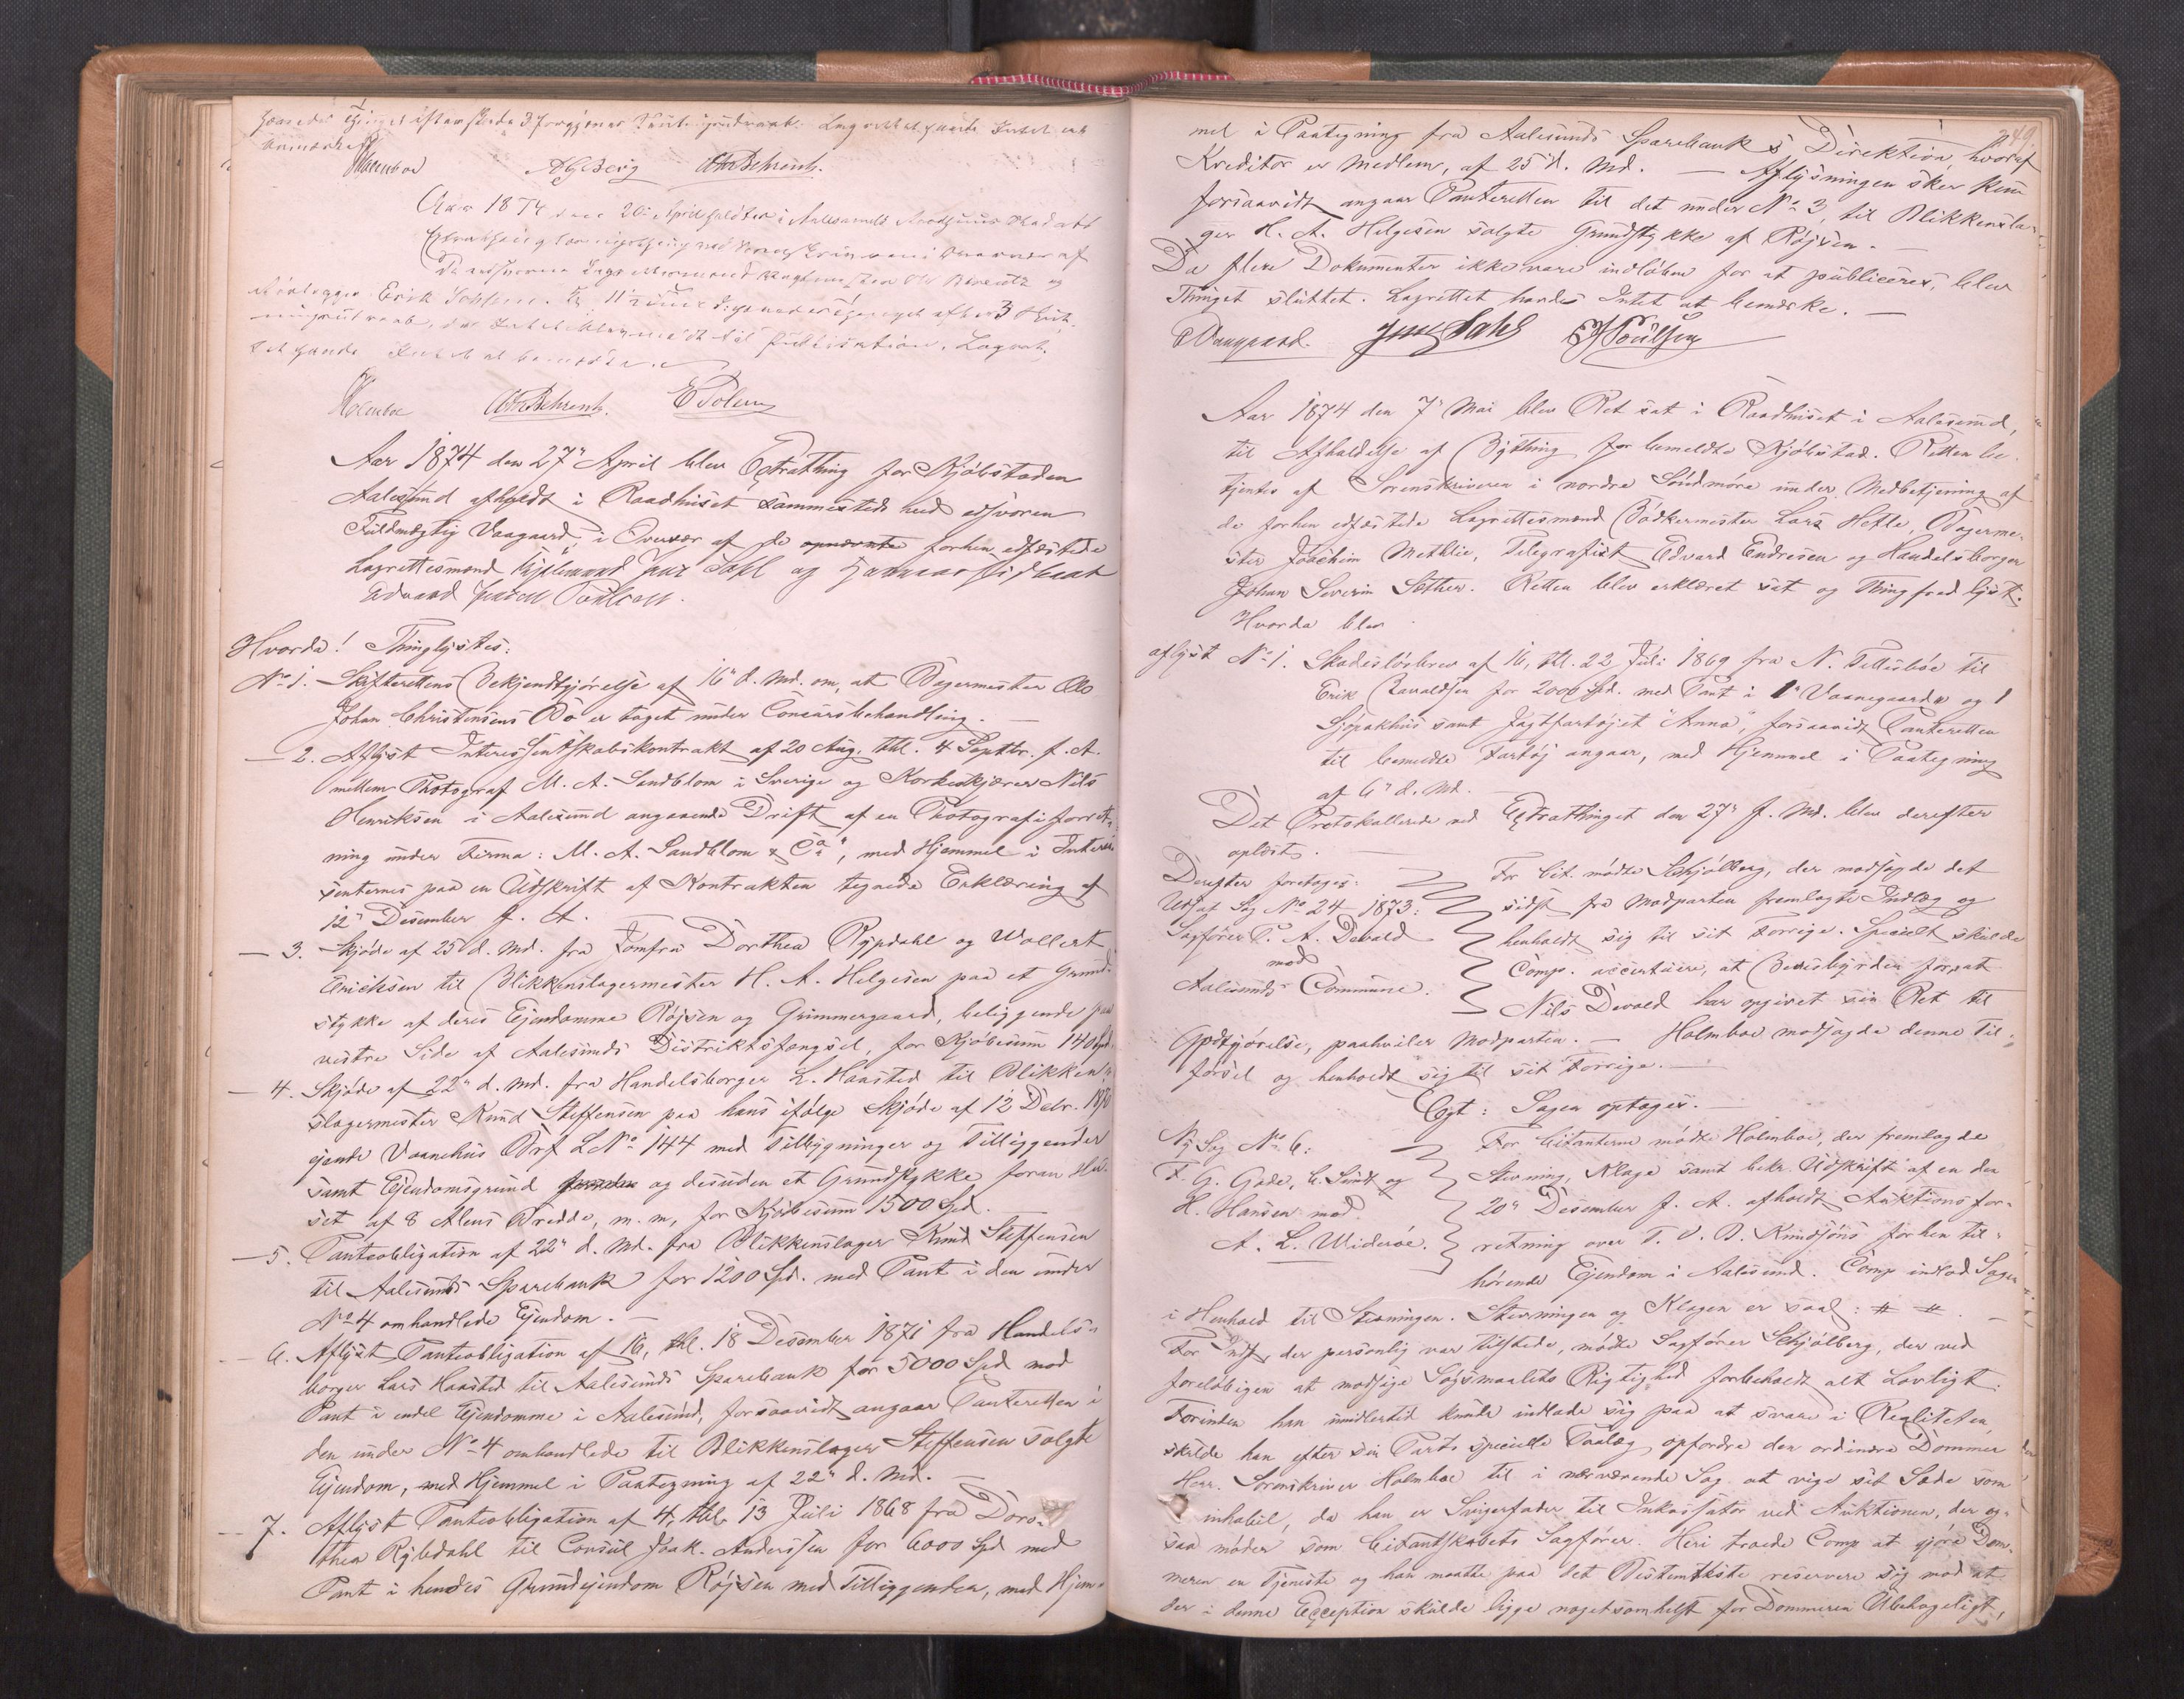 hævedes Thinget efter skeede 3 forgjæves Paaraab. Lagrettet havde Intet at
bemærke.
Holmboe A. G. Berg Chr. Behrentz.
Aar 1874 den 20 April holdtes i Aalesunds Raadhuus
Lagrettesmænd
Erik Kl 11 3
Intet til Publikation. Lagret-
tet havde Intet at bemærke.
Holmboe Chr. Behrentz. E Solem
Aar 1874 den 27" April blev Extrathing for Kjøbstaden
Aalesund afholdt i Raadhuset sammesteds ved edsvoren
Fuldmægtig Vaagaard, i Overvær af de opnævnte forhen edfæstede
Lagrettesmænd Jens Dahl og
Edvard Poulsen.
Hvorda! Thinglystes:
No 1. Skifterettens Bekjendtgjørelse af 16" d. Md. om, at Bagermester Ole
Johan Christensens Bo er taget under Concursbehandling. —
— 2. Aflyst Interessentskabskontrakt af 20 Aug. thl. 4 Septbr. f. A.
mellem Photograf M. A. Sandblom i Sverige og Korkeskjærer Nils
Henriksen i Aalesund angaaende Drift af en Photografiforret-
ning under Firma: M. A. Sandblom & Co", med Hjemmel i Interes-
senternes paa en Udskrift af Kontrakten tegnede Erklæring af
12" Desember f. A.
— 3. Skjøde af 25 d. Md. fra Jomfru Dorthea Rypdahl og Wollert
Ericksen til Blikkenslagermester H. A. Helgesen paa et Grund-
stykke af deres Ejendomme Røjsen og Grimmergaard, beliggende paa
vestre Side af Aalesunds Distriktsfængsel, for Kjøbesum 140 Spd.
— 4. Skjøde af 22" d. Md. fra Handelsborger L. Haasted til Blikken-
slagermester Knud Steffensen paa hans ifølge Skjøde af 12 Debr. 1870
ejende Vaanehus Brf LNo 144 med Tilbygninger og Tilliggender
samt Ejendomsgrund og desuden et Grundstykke foran Hu-
set af 8 Alens Bredde, m. m, for Kjøbesum 1500 Spd.
— 5. Panteobligation af 22" d. Md. fra Blikkenslager Knud Steffensen
til Aalesunds Sparebank for 1200 Spd. med Pant i den under
No 4 omhandlede Ejendom. —
— 6. Aflyst Panteobligation af 16, thl. 18 Desember 1871 fra Handels-
borger Lars Haasted til Aalesunds Sparebank for 5000 Spd mod
Pant i endel Ejendomme i Aalesund, forsaavidt angaar Panteretten i
den under No 4 omhandlede til Blikkenslager Steffensen solgte
Ejendom, med Hjemmel i Paategning af 22" d. Md. —
— 7. Aflyst Panteobligation af 4, thl. 13 Juli 1868 fra Doro-
thea Rybdahl til Consul Joak. Anderssen for 6000 Spd med
Pant i hendes Grundejendom Røjsen med Tilliggender, med Hjem-
249.
mel i Paategning fra Aalesunds Sparebank's Direktion, hvoraf
Kreditor er Medlem, af 25" d. Md. — Aflysningen sker kun
forsaavidt angaar Panteretten til det under No 3, til Blikkensla-
ger H. A. Helgesen solgte Grundstykke af Røjsen. —
Da flere Dokumenter ikke vare indløbne for at publiceres, blev
Thinget sluttet. Lagrettet havde Intet at bemærke. —
Vaagaard. Jens Dahl E J Poulsen
Aar 1874 den 7" Mai blev Ret sat i Raadhuset i Aalesund,
til Afholdelse af Bything for bemeldte Kjøbstad. Retten be-
tjentes af Sorenskriveren i nordre Søndmøre under Medbetjening af
de forhen edfæstede Lagrettesmænd Bødkermester Lars Hetle, Bagerme-
ster Joachim Methlie, Telegrafist Edvard Endresen og Handelsborger
Johan Severin Sæther. Retten blev erklæret sat og Thingfred lyst.
Hvorda blev
aflyst No 1. Skadesløsbrev af 16, thl. 22 Juli 1869 fra N. Fillisbøe til
Erik Bavaldsen for 2000 Spd. med Pant i 1" Vaanegaard og 1
Sjøpakhus samt Jagtfartøjet "Anna", forsaavidt Panteretten
til bemeldte Fartøj angaar, med Hjemmel i Paategning
af 6" d. Md.
Det Protokollerede ved Extrathinget den 27" f. Md. blev derefter
oplæst. —
Derefter foretoges:
Udsat Sag No 24 - 1873:
Sagfører P. A. Devold
mod
Aalesunds Commune.
For Cit. mødte Schjølberg, der modsagde det
sidst fra Modparten fremlagte Indlæg og
henholdt sig til sit Forrige. Specielt skulde
Comp. accentuere, at Bevisbyrden for, at
Nils Devold har opgivet sin Ret til
Opfyjørelse, paahviler Modparten. — Holmboe modsagde denne Til-
førsel og henholdt sig til sit Forrige. —
Cgt: Sagen optages. —
Ny Sag No 6:
F. G. Gade, C. Sundt og
H. Hansen mod
A. L. Widerøe.
For Citanterne mødte Holmboe, der fremlagde
Stevning, Klage samt bekr. Udskrift af en den
20" Desember f. A. afholdt Auktionsfor-
retning over T. O. B. Knudsøns forhen til-
hørende Ejendom i Aalesund. Comp indlod Sagen
i Henhold til Stevningen. Stevningen og Klagen er saal: # #. —
For Indst., der personlig var tilstede, mødte Sagfører Schjølberg, der ved
foreløbigen at modsige Søgsmaalets Rigtighed forbeholdt alt Lovligt:
Forinden han imidlertid kunde indlade sig paa at svare i Realiteten,
skulde han efter sin Parts specielle Paalæg opfordre den ordinære Dommer
Herr. Sorenskriver Holmboe til i nærværende Sag at vige sit Sæde som
inhabil, da han er Svigerfader til Inkassator ved Auktionen, der og-
saa møder som Citantskabets Sagfører. Heri troede Comp at gjøre Dom-
meren en Tjeneste og han maatte paa det Bestemteste reservere sig mod at
der i denne Exception skulde ligge nogetsomhelst for Dommeren Ubehageligt,